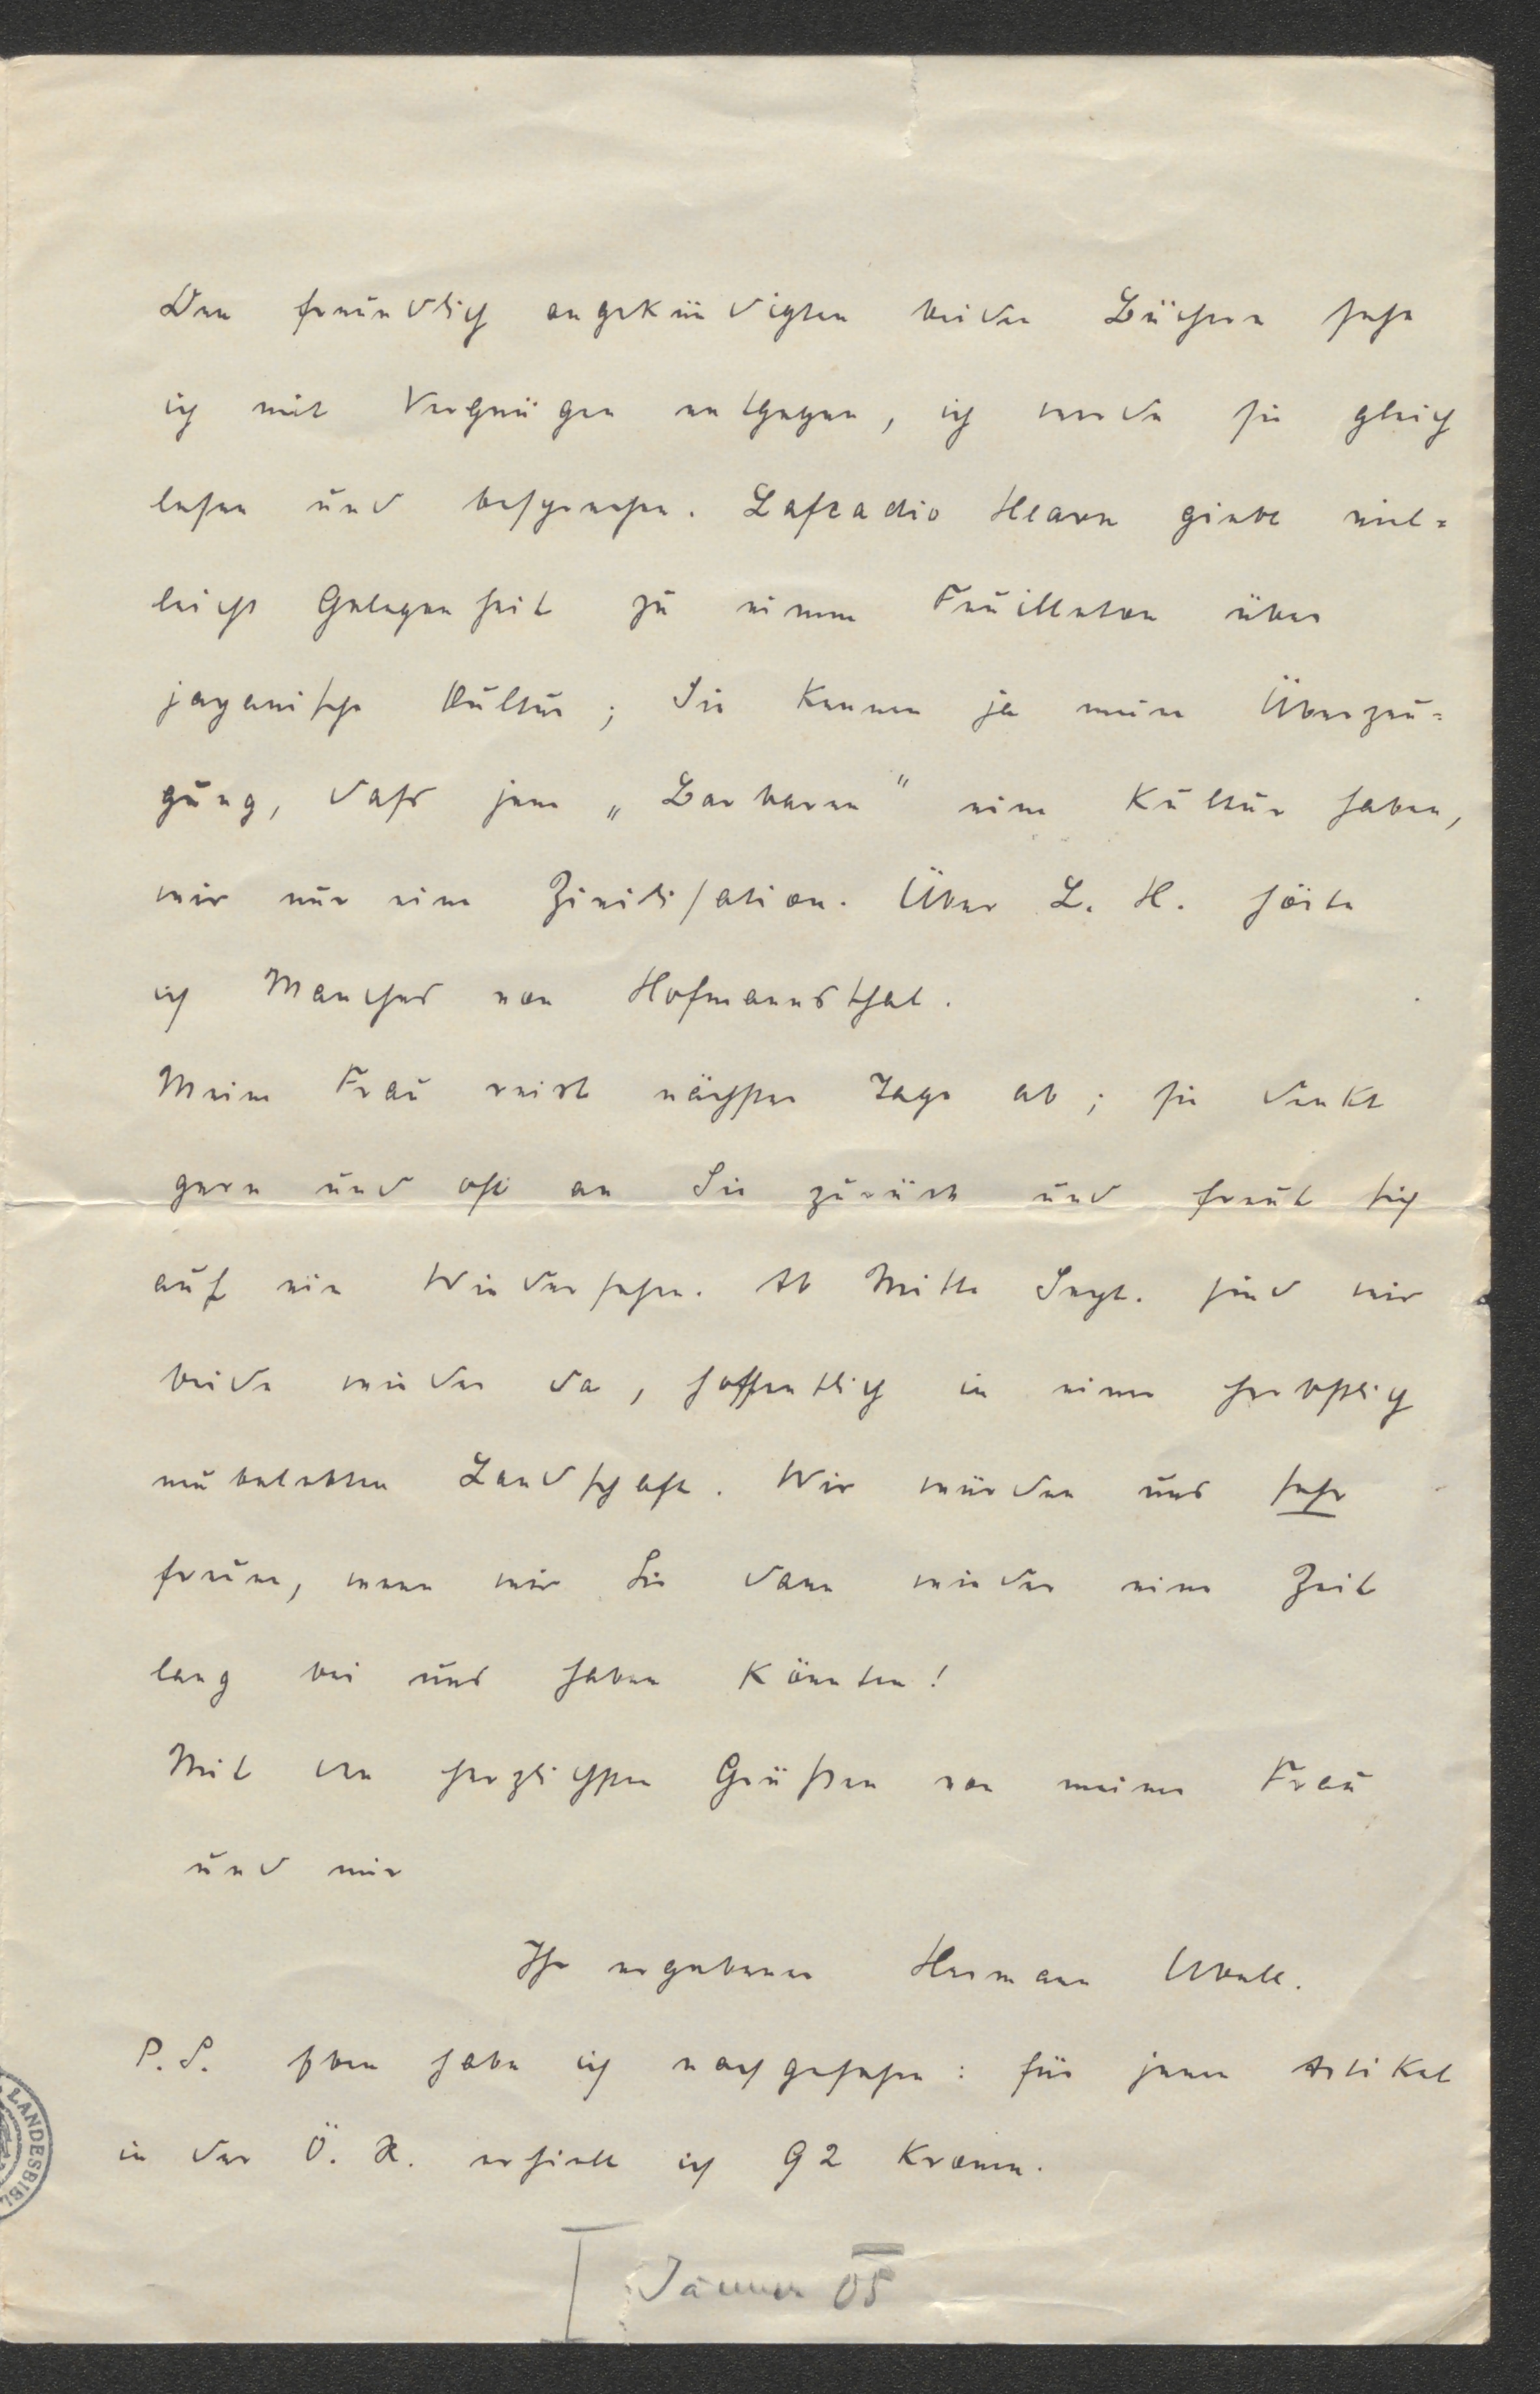 Den freundlich angekündigten beiden Büchern sehe
ich mit Vergnügen entgegen, ich werde sie gleich
lesen und besprechen. Lafcadio Hearn giebt viel=
leicht Gelegenheit zu einem Feuilleton über
japanische Kultur; Sie kennen ja meine Überzeu=
gung, dass jene „Barbaren" eine Kultur haben,
wir nur eine Zivilisation. Über L. H. hörte
ich Manches von Hofmannsthal.
Meine Frau reist nächster Tage ab; sie denkt
gern und oft an Sie zurück und freut sich
auf ein Wiedersehen. Ab Mitte Sept. sind wir
beide wieder da, hoffentlich in einer herbstlich
neubelebten Landschaft. Wir würden uns sehr
freuen, wenn wir Sie dann wieder eine Zeit
lang bei uns haben könnten!
Mit den herzlichsten Grüßen von meiner Frau
und mir
Ihr ergebener Hermann Ubell.
P.S. Eben habe ich nachgesehen: für jenen Artikel
in der Ö. R. erhielt ich 92 Kronen.
Jänner 05
LANDESBIBL